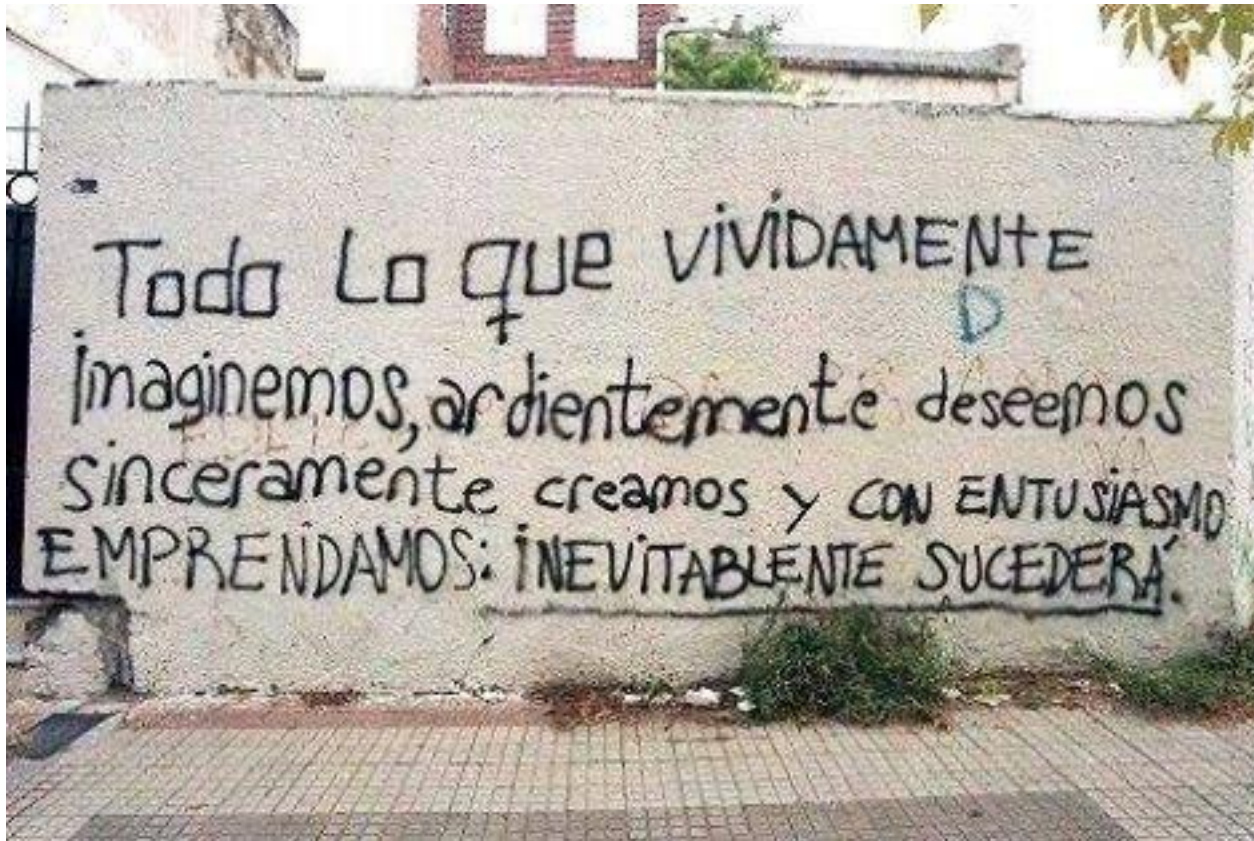 Todo Lo que ViViDAMENtE
D
imaginemos, ardientemente deseemos
sinceramente creamos y CON ENTUSiASMO
EMPRENDAMOS: iNEViTABLENTE SUCEDERÁ.